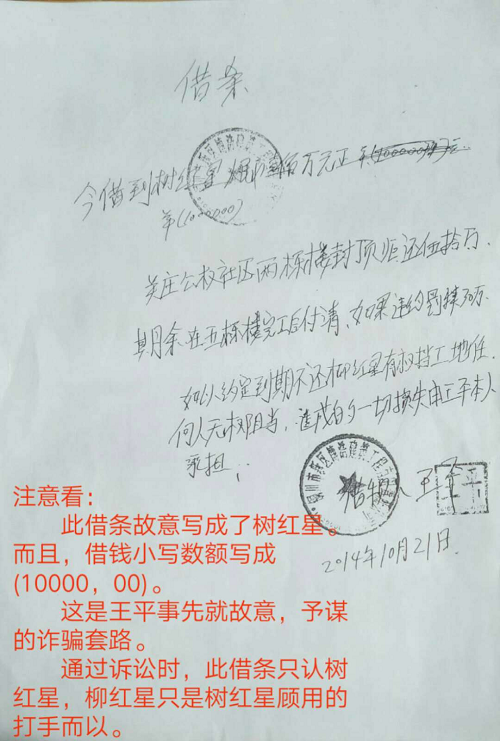 借条
今借到树红星人民币壹佰万元正
￥(1000000)
关庄公权社区两栋楼封顶后还伍拾万.
其余在五栋楼完工后付清、如果违约罚款30万.
如以约定到期不还柳红星有权挡工地任
何人无权阻当，造成的一切损失由王平本人
承担.
借款人 王平
2014年10月21日.
注意看：
此借条故意写成了树红星。
而且，借钱小写数额写成
(10000，00)。
这是王平事先就故意，予谋
的诈骗套路。
通过诉讼时，此借条只认树
红星，柳红星只是树红星顾用的
打手而以。